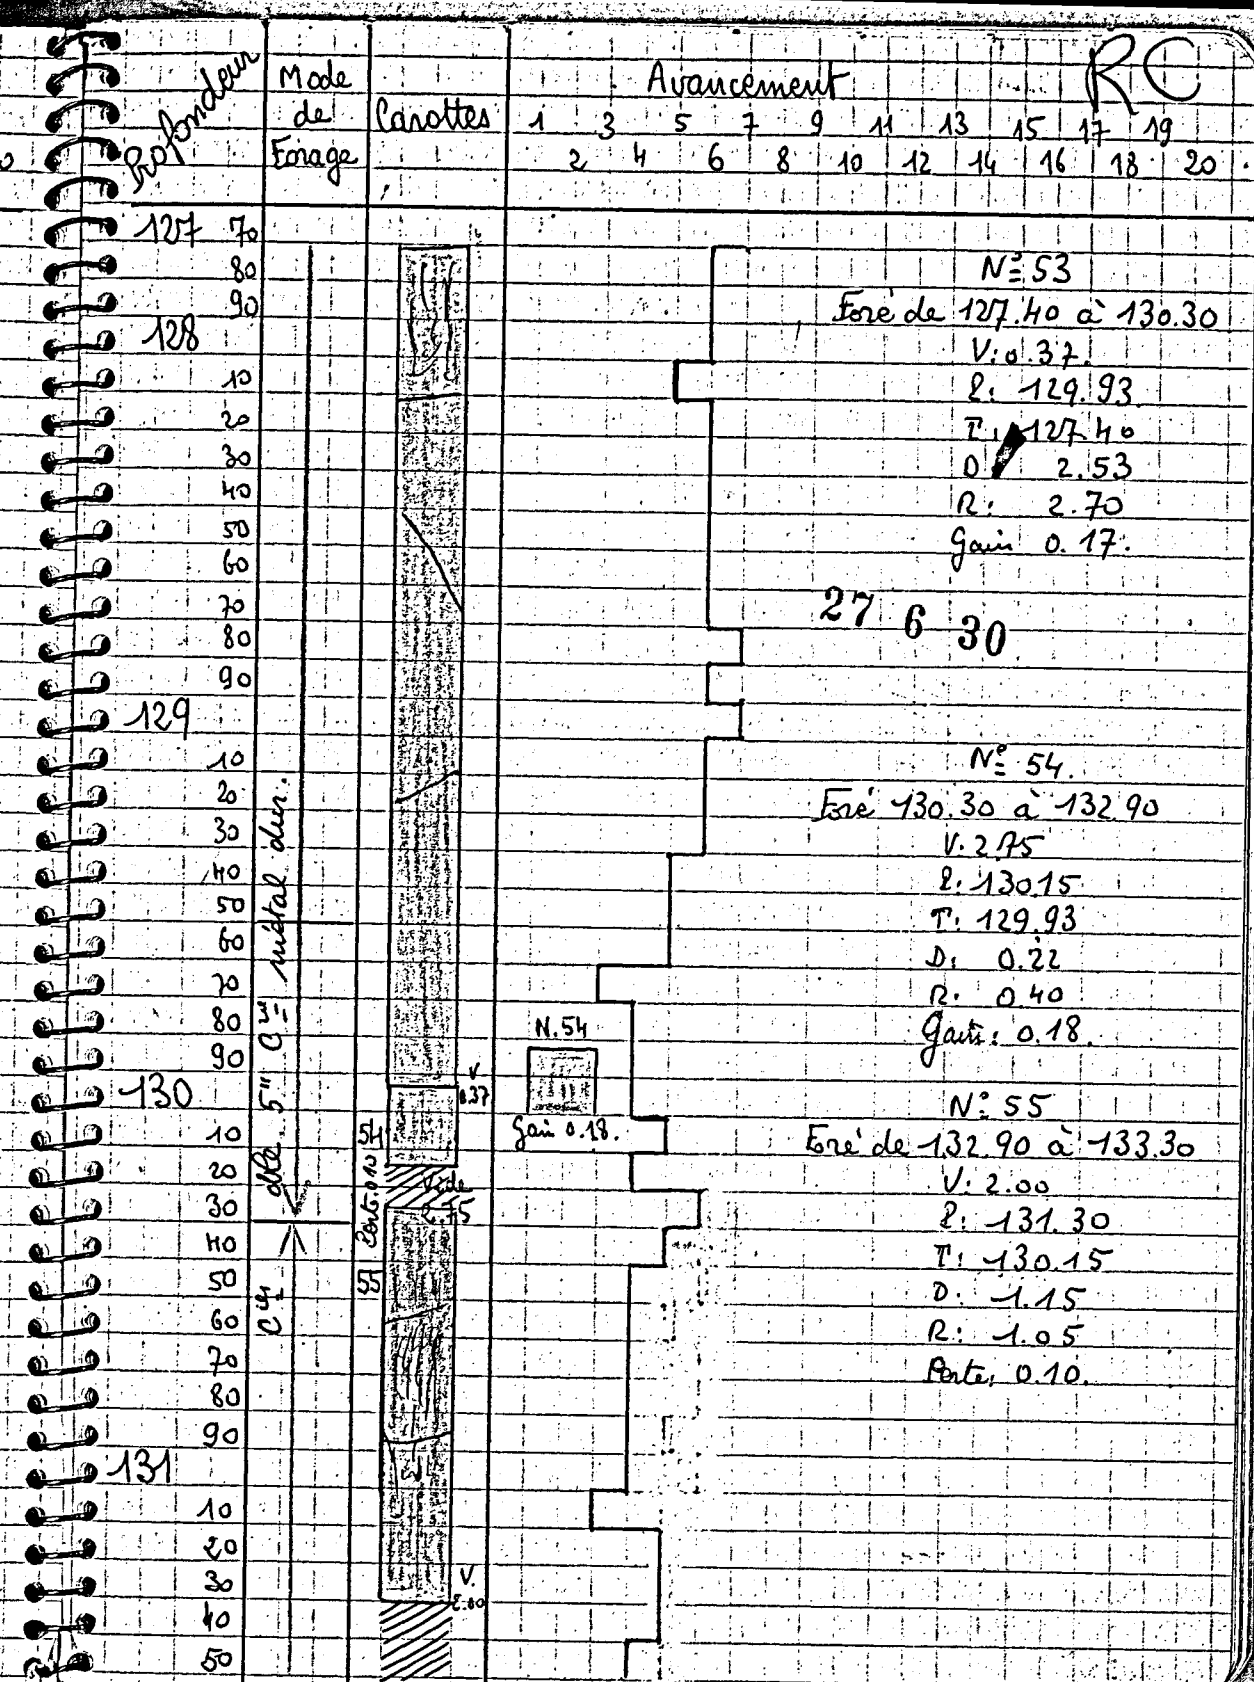 RC
Profondeur
Mode
de
Forage
Carottes
Avancement
1 3 5 7 9 11 13 15 17 19
2 4 6 8 10 12 14 16 18 20
127 70
80
90
128
10
20
30
40
50
60
70
80
90
129
10
20
30
40
50
60
70
80
90
130
10
20
30
40
50
60
70
80
90
131
10
20
30
40
50
métal dur.
5"
54
Perte 0.10
55
V
0.37
Vide
2.75
V.
2.00
N. 54
Gain 0.18.
N° 53
Foré de 127.40 à 130.30
V: 0.37.
R: 129.93
T: 127.40
D 2.53
R: 2.70
Gain 0.17.
27 6 30
N° 54.
Foré 130.30 à 132.90
V: 2.75
R: 130.15
T: 129.93
D: 0.22
R: 0.40
Gain: 0.18.
N° 55
Foré de 132.90 à 133.30
V: 2.00
R: 131.30
T: 130.15
D: 1.15
R: 1.05
Perte: 0.10.